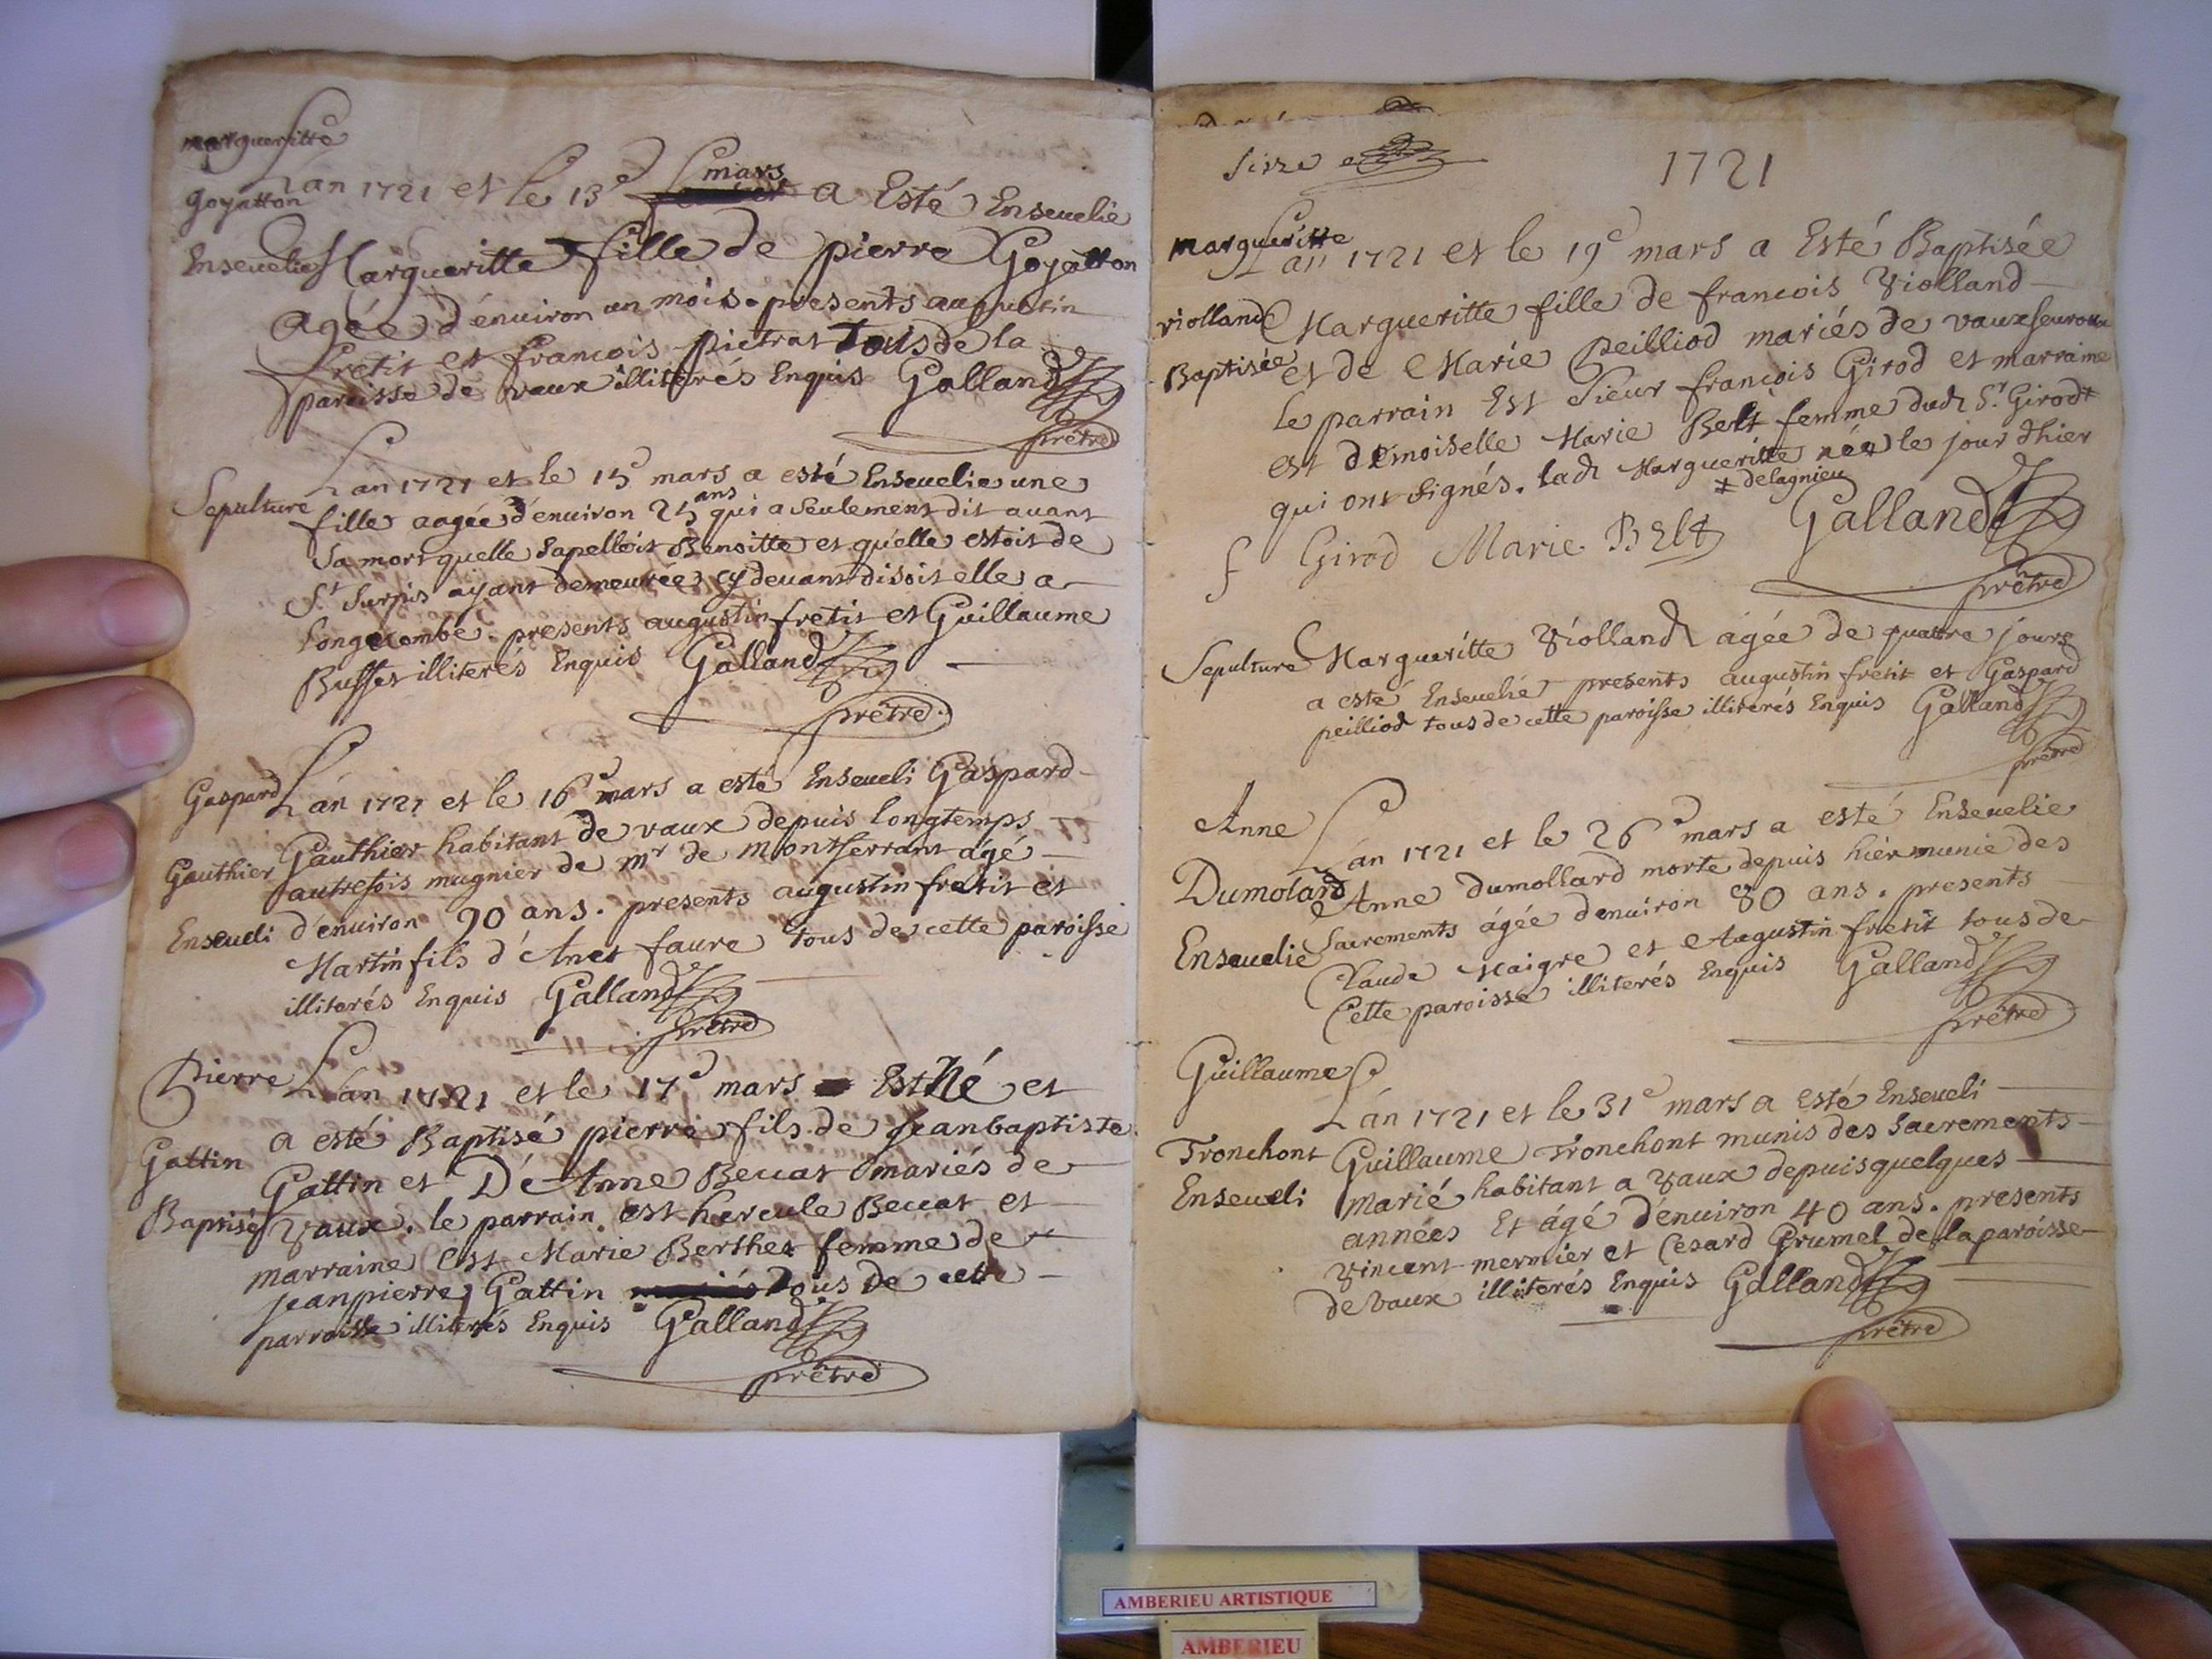 margueritte
goyatton
Enseuelie
Lan 1721 et le 13e mars a Esté Enseuelie
Margueritte fille de pierre Goyatton
Agée d'énuiron un mois. presents augustin
fretit et francois pietrat Tous de la
paroisse de vaux illiterés Enquis Galland
prêtre
Sepulture
Lan 1721 et le 15e mars a esté Enseuelie une
fille aagée d'énuiron 25 ans qui a seulement dit auant
sa mort quelle sapelloit Benoitte et quélle estoit de
St Surpis ayant demeurée cy deuant disoit elle a
Longecombe. presents augustin fretit et Guillaume
Buffet illiterés Enquis Galland
prêtre.
Gaspard
Gauthier
Enseueli
Lán 1721 et le 16e mars a esté Enseueli Gaspard
Gauthier habitant de vaux depuis longtemps
autrefois mugnier de mr de montferrant agé
d'énuiron 90 ans. presents augustin fretit et
Martin fils d'Anet faure tous de cette paroisse
illiterés Enquis Galland
prêtre
Pierre
Gattin
Baptisé
Lan 1721 et le 17e mars Est Né et
a esté Baptisé pierre fils de jeanbaptiste
Gattin et D'Anne Beccat mariés de
Vaux. le parrain est hercule Beccat et
marraine Est Marie Berthet femme de
jeanpierre Gattin tous de cette
parroisse illiterés Enquis Galland
prêtre
1721
margueritte
violland
Baptisée
Lan 1721 et le 19e mars a Esté Baptisée
Margueritte fille de francois Violland
et de Marie Peilliod mariés de vaux
le parrain Est Sieur francois Girod et marraine
est demoiselle Marie Belt femme dudt Sr Girod ‡
qui ont signés. ladt Margueritte née le jour dhier
‡ delagnieu
f Girod Marie BElt Galland
prêtre
Sepulture
Margueritte Violland agée de quatre jours
a esté Enseuelie presents augustin fretit et Gaspard
peilliod tous de cette paroisse illiterés Enquis Galland
prêtre
Anne
Dumolard
Enseuelie
Lán 1721 et le 26e mars a esté Enseuelie
Anne Dumollard morte depuis hièr munie des
Sacrements ágée denuiron 80 ans. presents
Claude Maigre et Augustin fretit tous de
Cette paroisse illiterés Enquis Galland
prêtre
Guillaume
Tronchont
Enseueli
Lán 1721 et le 31e mars a esté Enseueli
Guillaume Tronchont munis des Sacrements
marié habitant a Vaux depuis quelques
années Et ágé d'énuiron 40 ans. presents
Vincent mermier et Cesard Grumel de la paroisse
de Vaux illiterés Enquis Galland
prêtre
AMBERIEU ARTISTIQUE
AMBERIEU